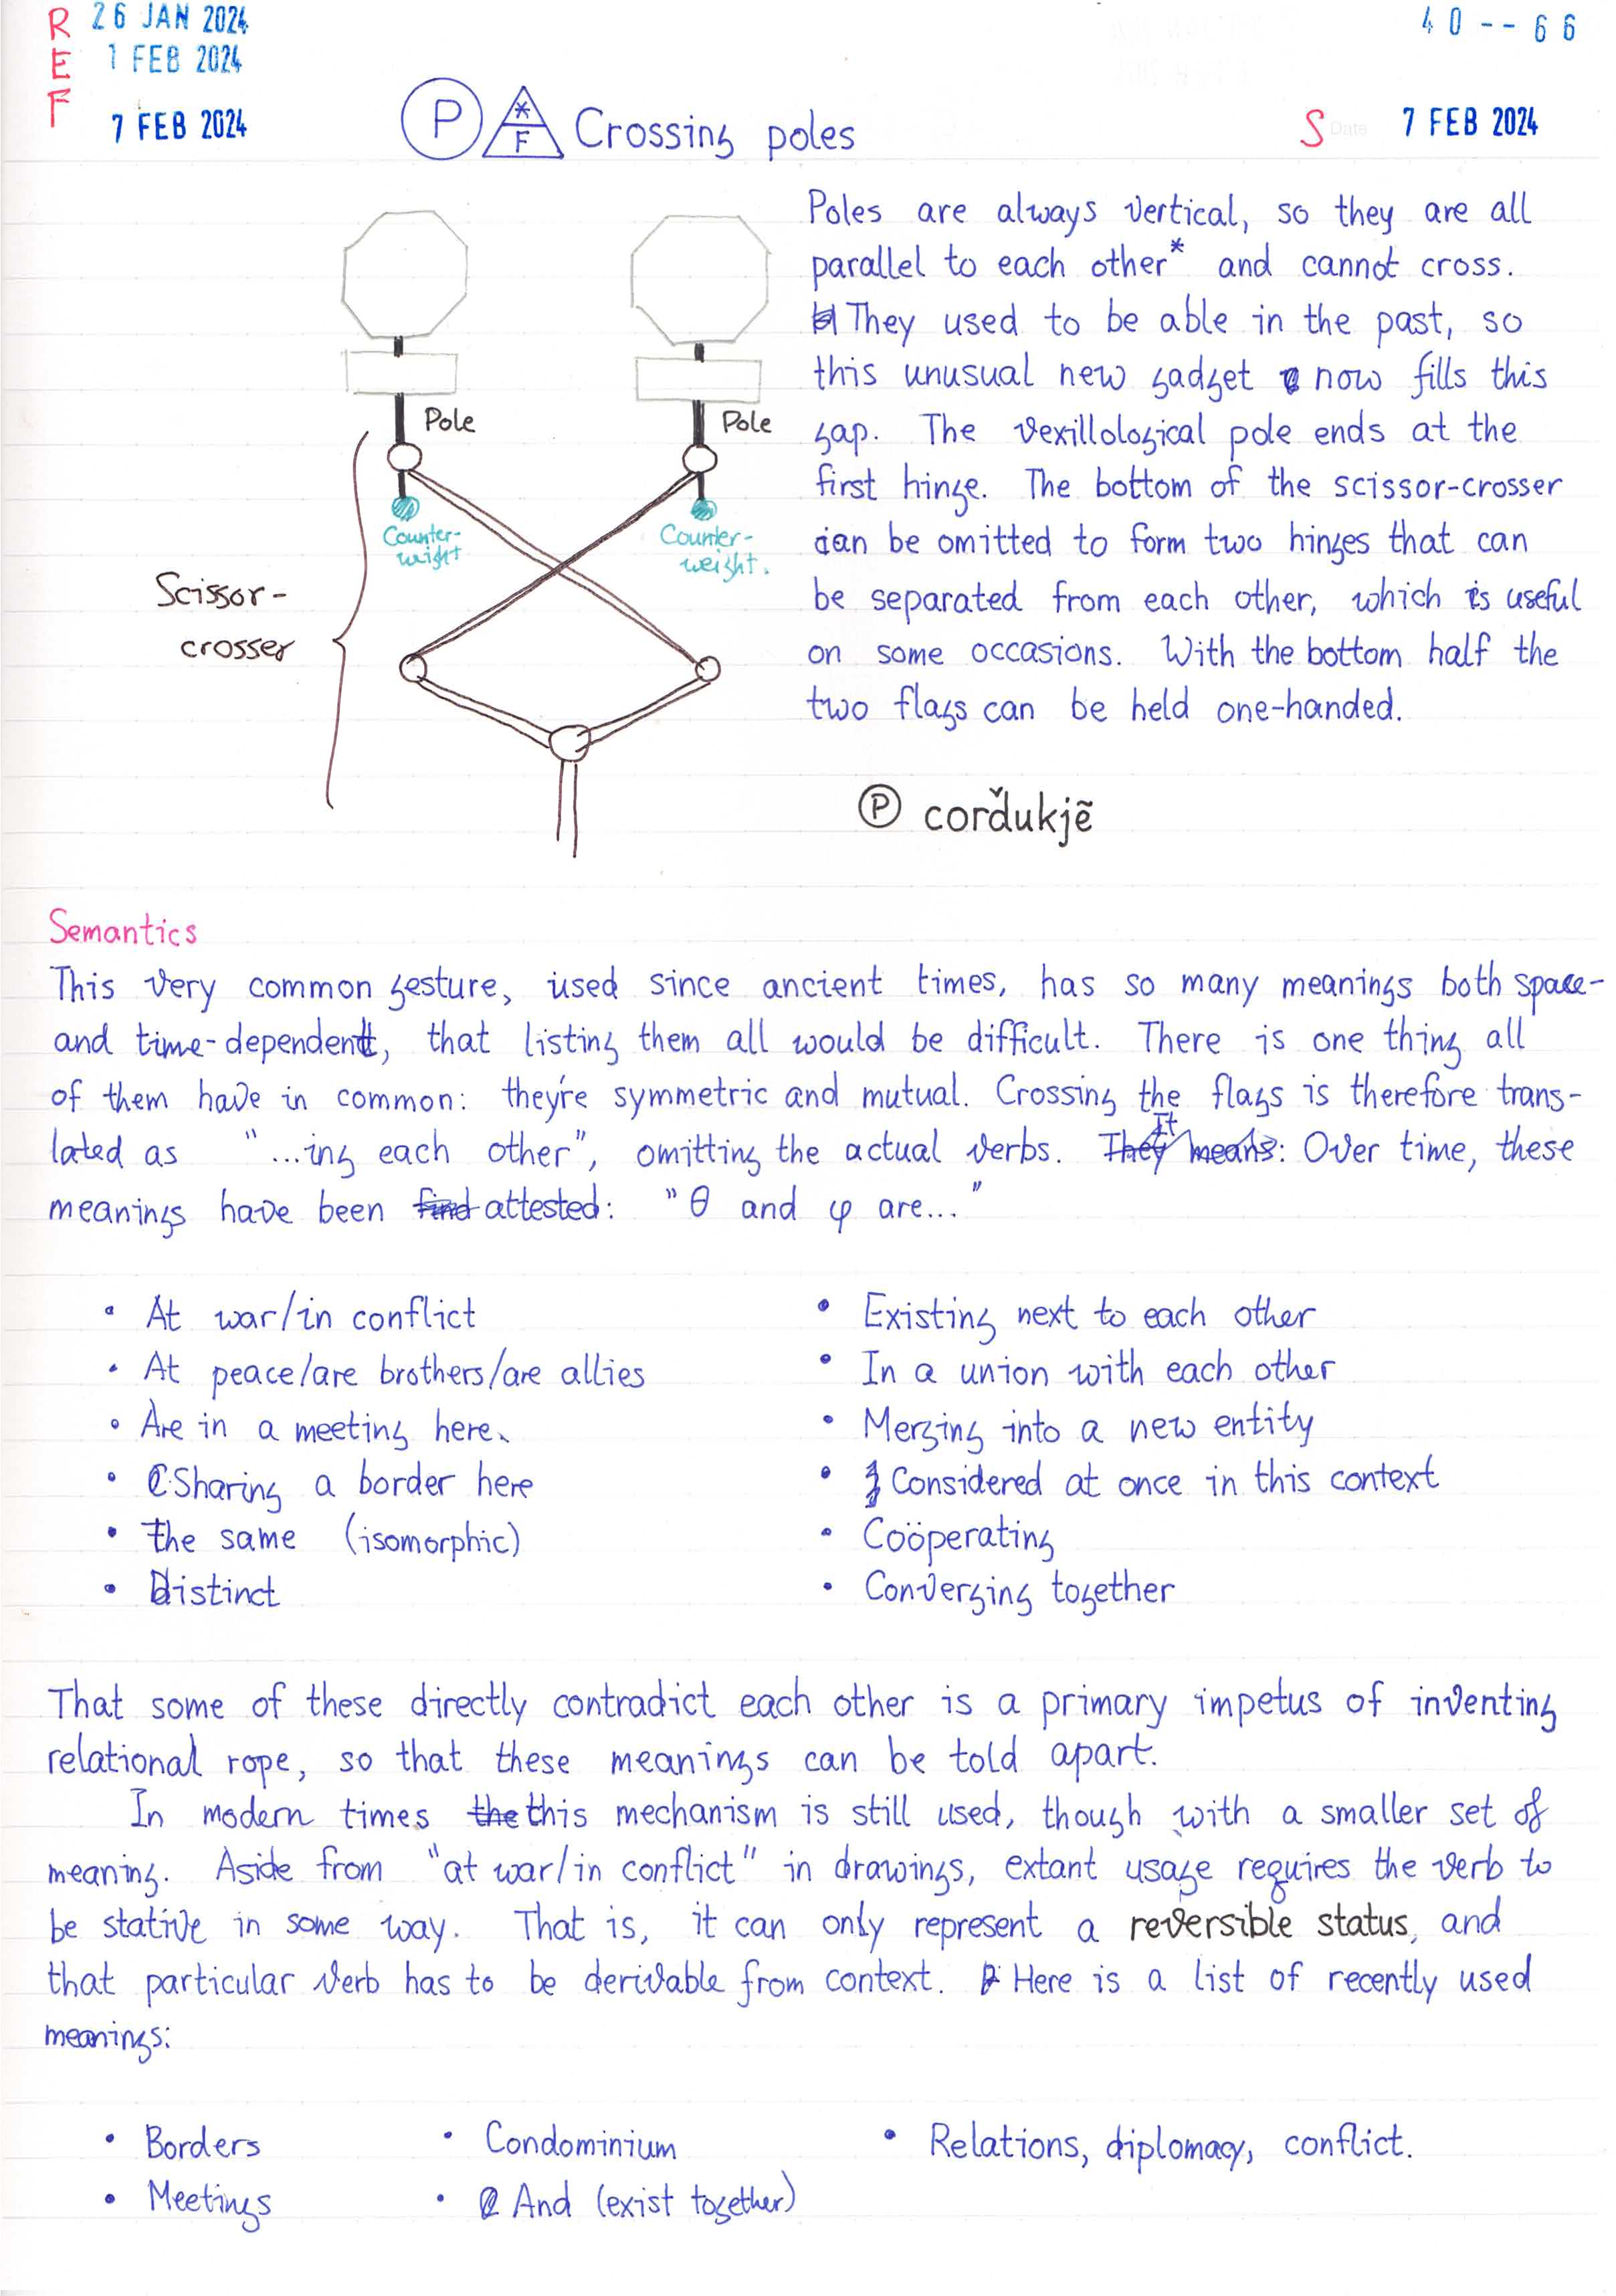 REF
26 JAN 2024
1 FEB 2024
7 FEB 2024
40--66
P * F Crossing poles
S Date 7 FEB 2024
Poles are always vertical, so they are all
parallel to each other* and cannot cross.
They used to be able in the past, so
this unusual new gadget now fills this
gap. The vexillological pole ends at the
first hinge. The bottom of the scissor-crosser
can be omitted to form two hinges that can
be separated from each other, which is useful
on some occasions. With the bottom half the
two flags can be held one-handed.
Pole
Pole
Counter-
weight
Counter-
weight.
Scissor-
crosser
Ⓟ corďukjẽ
Semantics
This very common gesture, used since ancient times, has so many meanings both space-
and time-dependent, that listing them all would be difficult. There is one thing all
of them have in common: they're symmetric and mutual. Crossing the flags is therefore trans-
lated as "...ing each other", omitting the actual verbs. They It means: Over time, these
meanings have been find attested: "θ and φ are..."
• At war/in conflict
• At peace/are brothers/are allies
• Are in a meeting here.
• Sharing a border here
• the same (isomorphic)
• Distinct
• Existing next to each other
• In a union with each other
• Merging into a new entity
• Considered at once in this context
• Coöperating
• Converging together
That some of these directly contradict each other is a primary impetus of inventing
relational rope, so that these meanings can be told apart.
In modern times the this mechanism is still used, though with a smaller set of
meaning. Aside from "at war/in conflict" in drawings, extant usage requires the verb to
be stative in some way. That is, it can only represent a reversible status, and
that particular verb has to be derivable from context. Here is a list of recently used
meanings:
• Borders
• Meetings
• Condominium
• And (exist together)
• Relations, diplomacy, conflict.